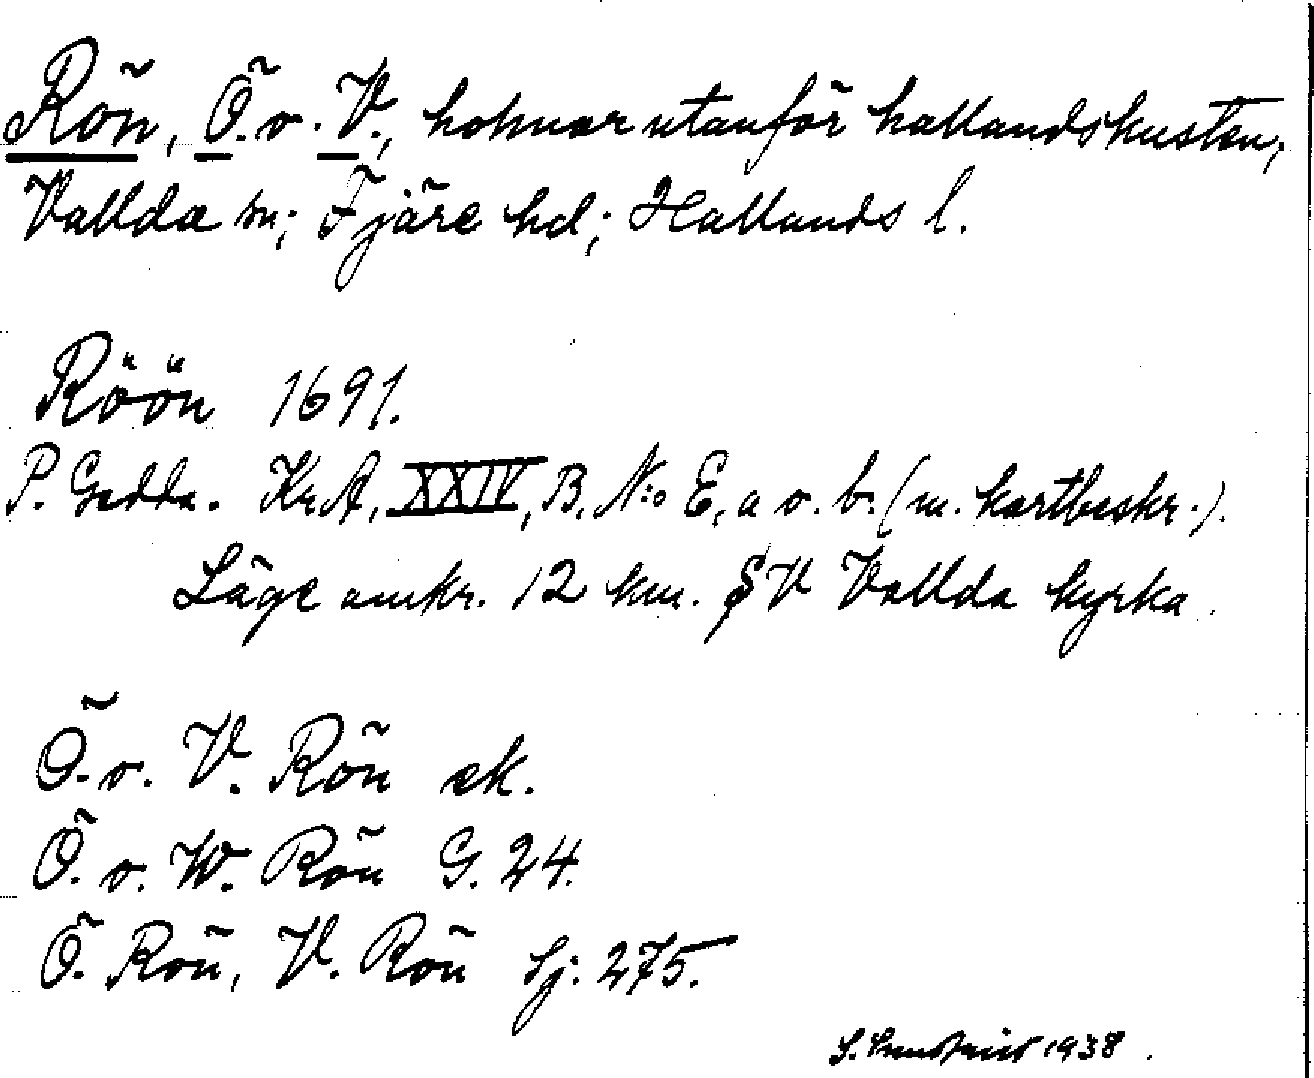 Rön, Ö. o. V., holmar utanför hallandskusten,
Vallda sn; Fjäre hd; Hallands l.
Röön 1691.
P. Gedda. Kr.A, XXIV, B. N:o E, a o. b. (m. kartbeskr.).
Läge omkr. 12 km. SV Vallda kyrka.
Ö. o. V. Rön ek.
Ö. o. W. Rön G. 24.
Ö. Rön, V. Rön Sj: 275.
S. 1938.